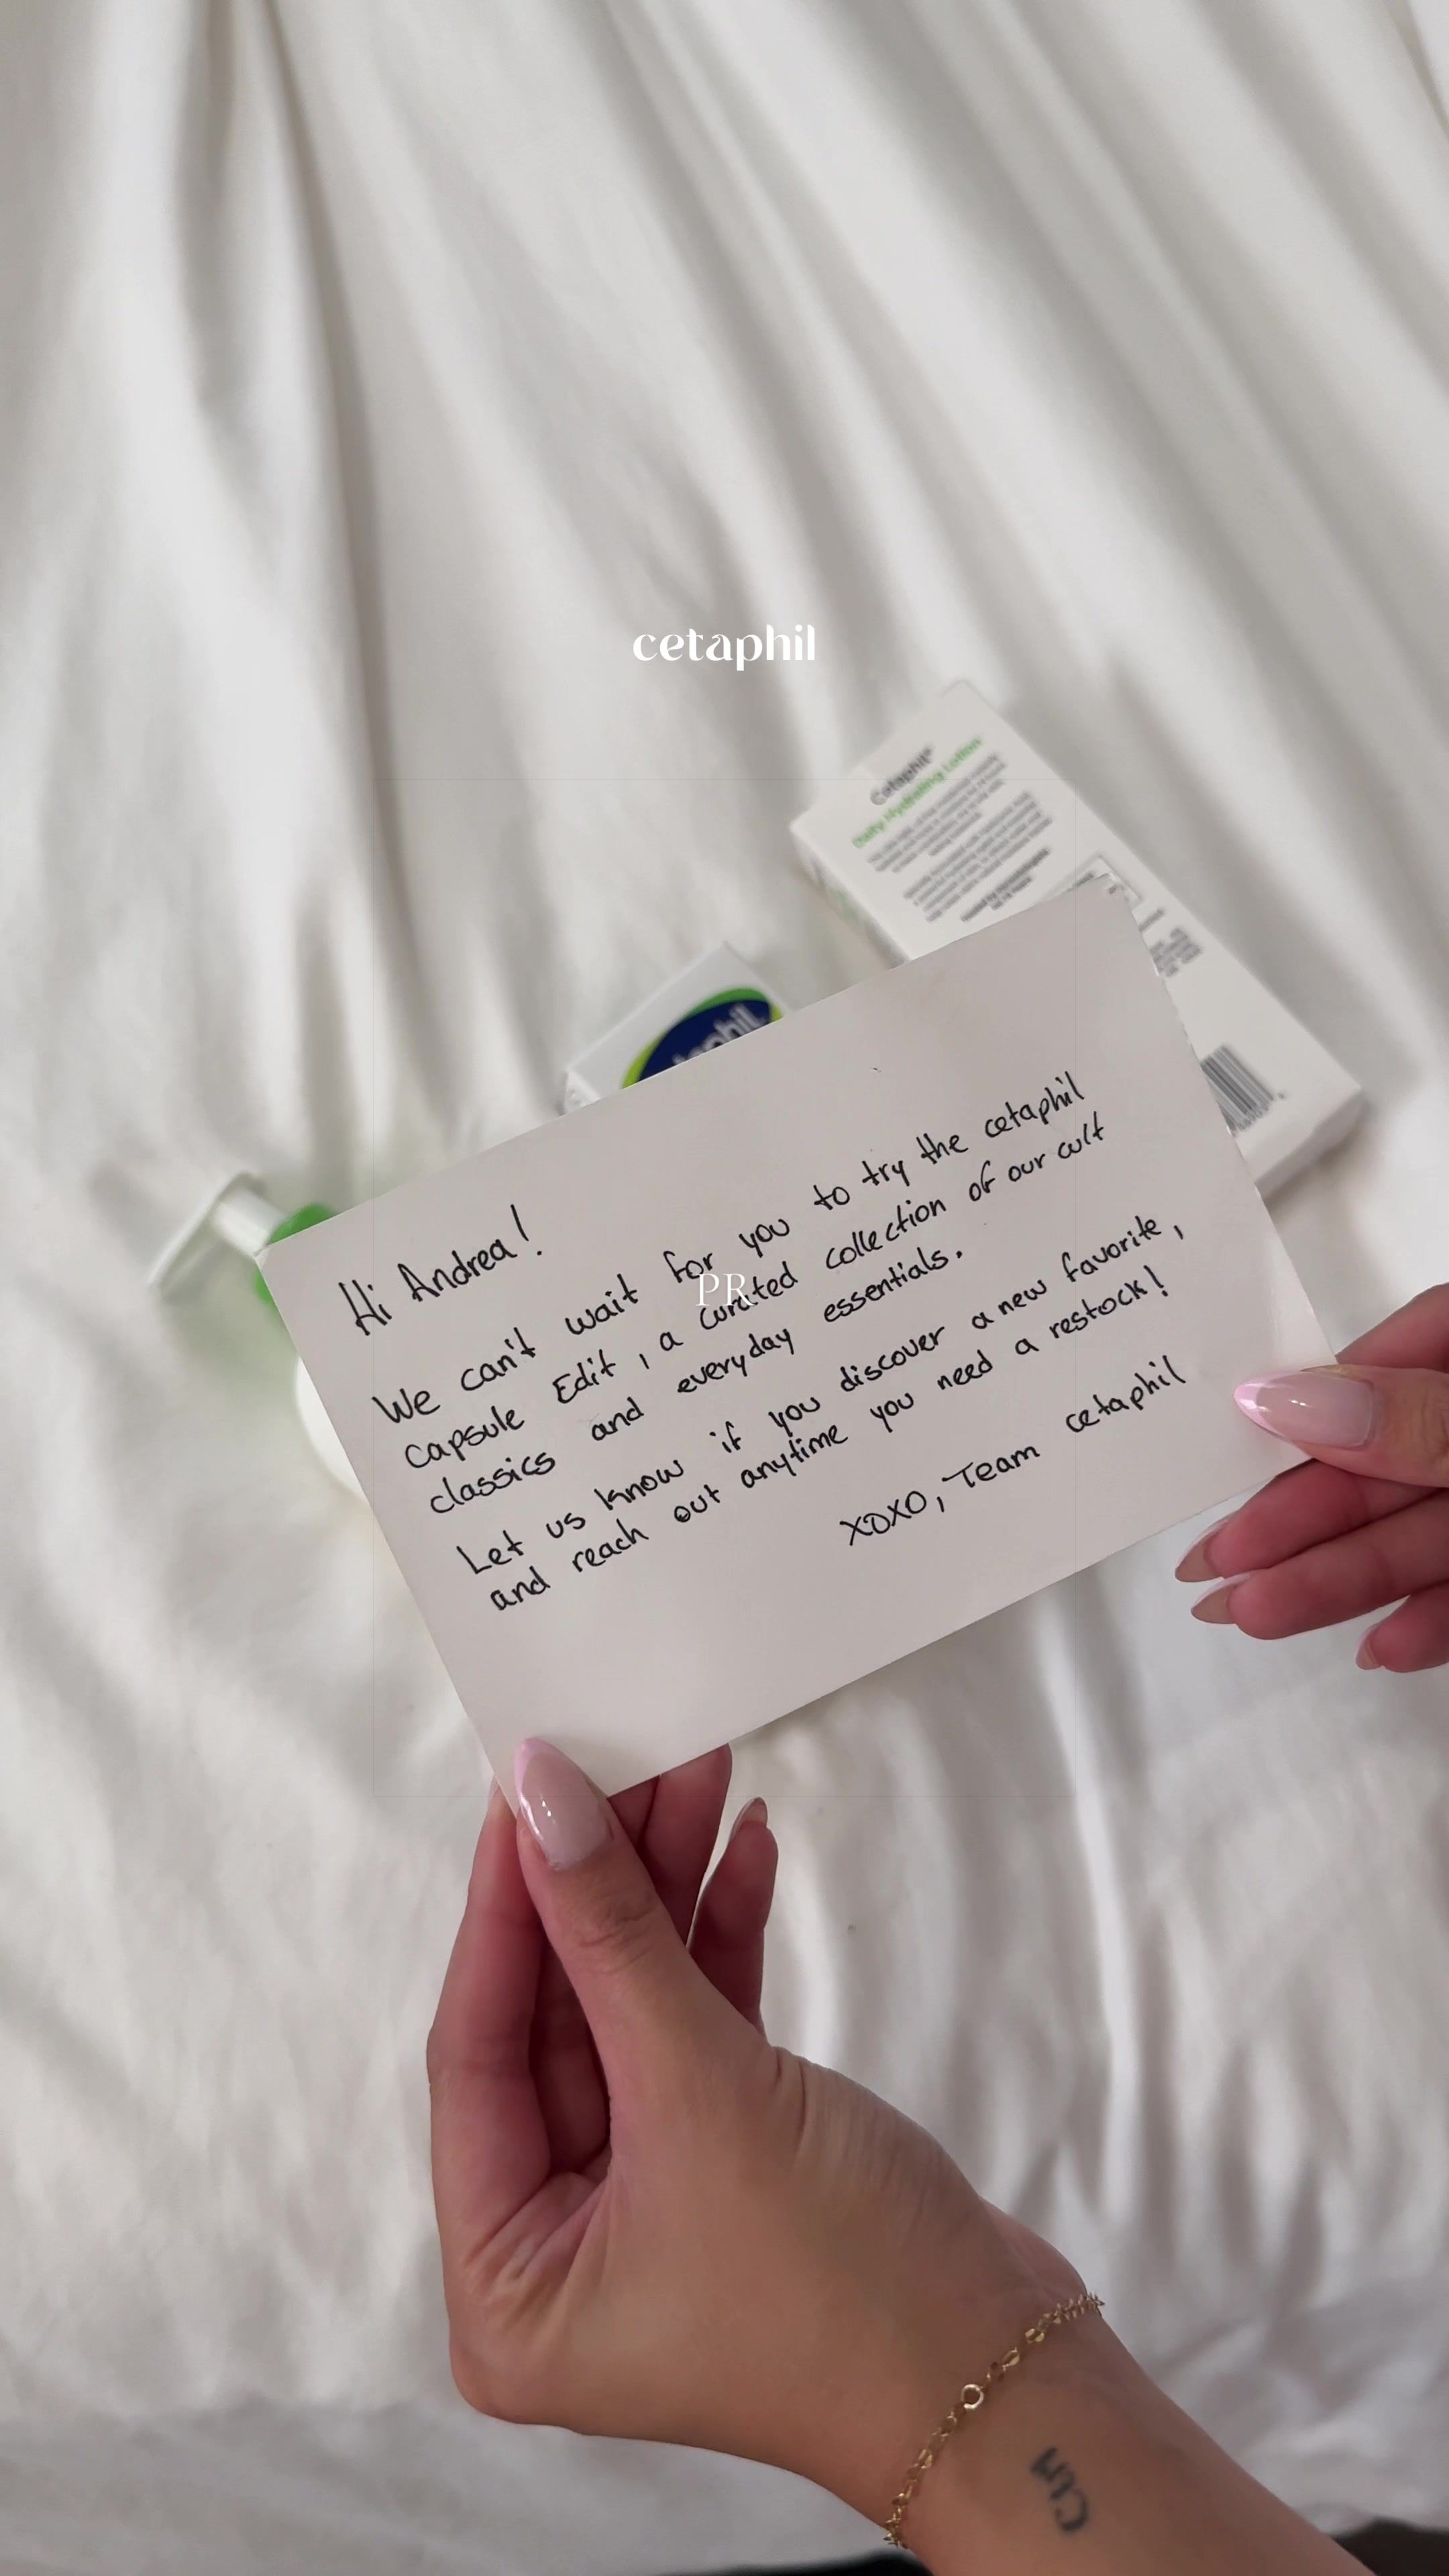 cetaphil
Cetaphil®
Daily Hydrating Lotion
Hi Andrea!
We can't wait for you to try the cetaphil
Capsule Edit, a curated collection of our cult
classics and everyday essentials.
Let us know if you discover a new favorite,
and reach out anytime you need a restock!
XOXO, Team cetaphil
PR